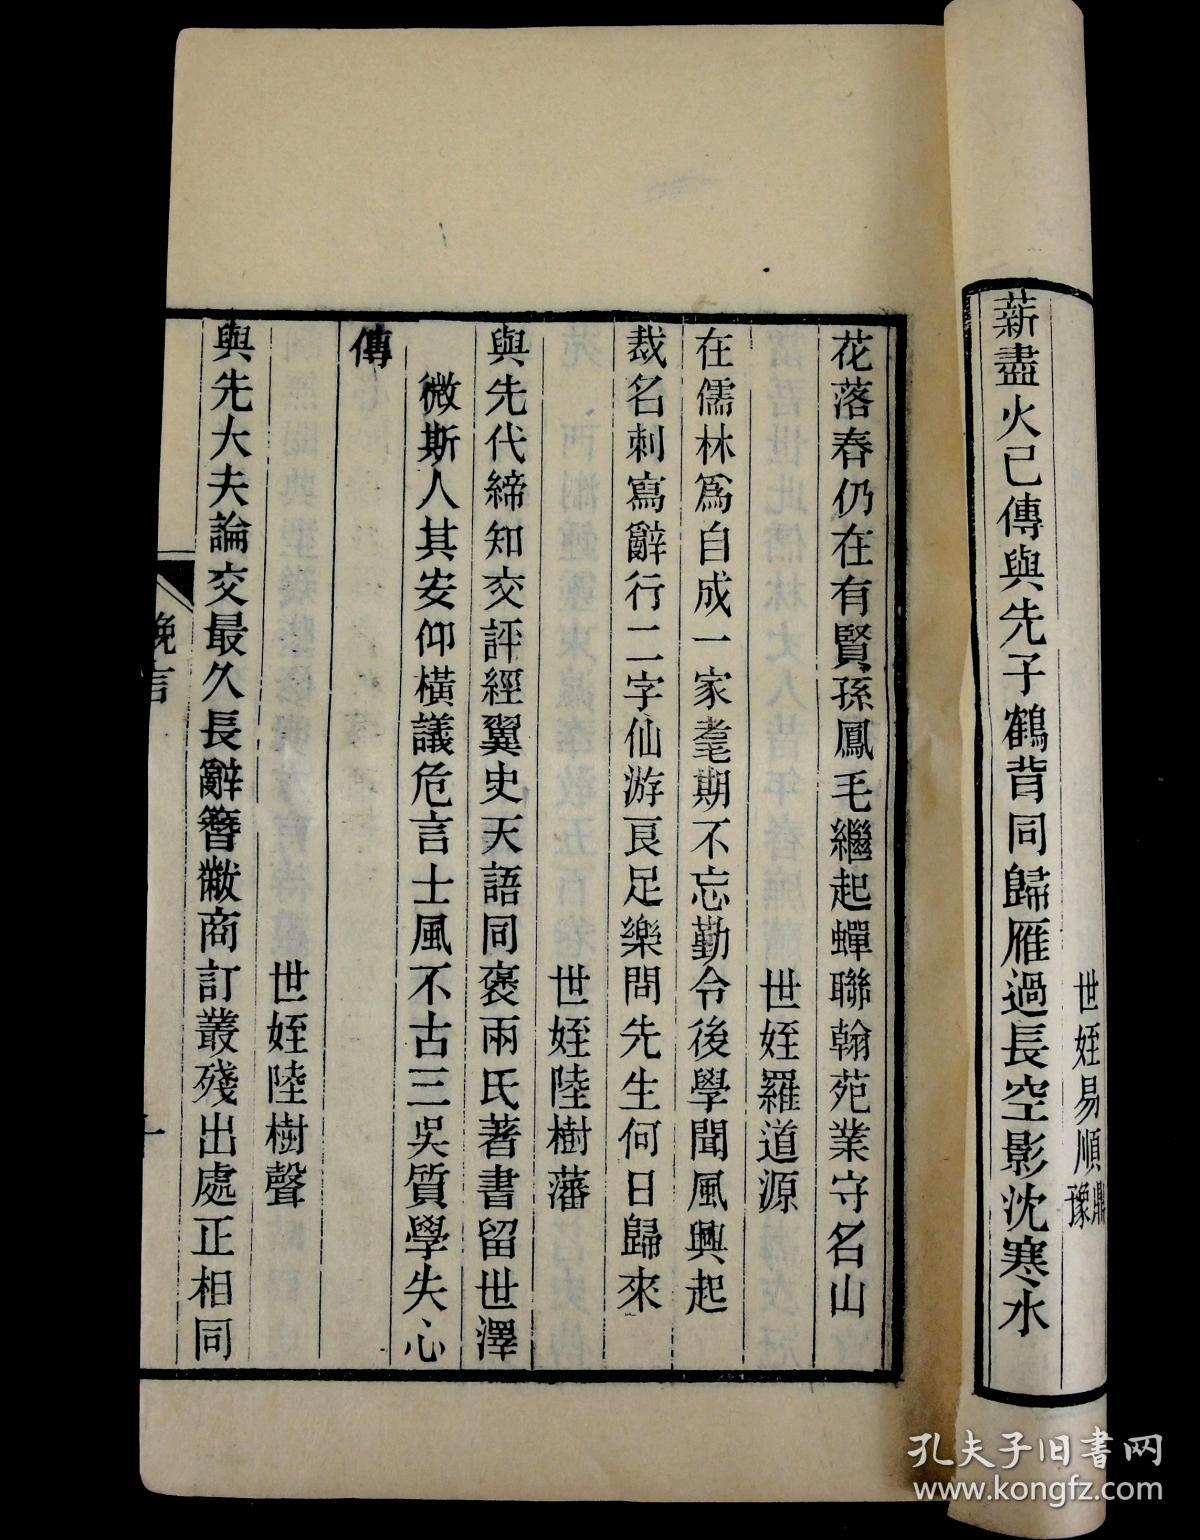 世姪易順鼎豫
薪盡火已傳與先子鶴背同歸雁過長空影沈寒水
花落春仍在有賢孫鳳毛繼起蟬聯翰苑業守名山
世姪羅道源
在儒林爲自成一家耄期不忘勤令後學聞風興起
裁名刺寫辭行二字仙游良足樂問先生何日歸來
世姪陸樹藩
與先代締知交評經翼史天語同褒兩氏著書留世澤
微斯人其安仰橫議危言士風不古三吳質學失心
傳
世姪陸樹聲
與先大夫論交最久長辭簪黻商訂叢殘出處正相同
輓言
孔夫子旧书网
www.kongfz.com